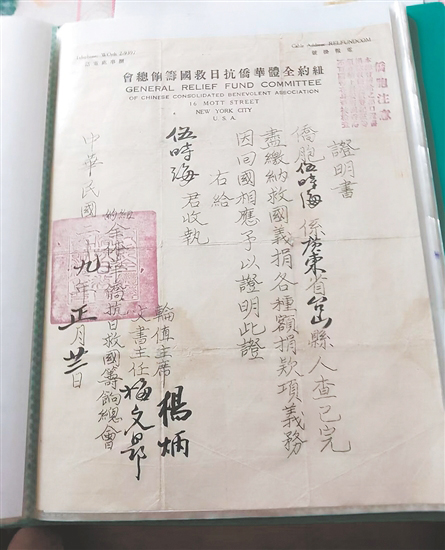 Cable Address: RELFUNDCOM.
紐約全體華僑抗日救國籌餉總會
GENERAL RELIEF FUND COMMITTEE
OF CHINESE CONSOLIDATED BENEVOLENT ASSOCIATION
16 MOTT STREET
NEW YORK CITY
U.S.A.
僑胞注意
證明書
僑胞伍時海係廣東省台山縣人查已完
盡繳納救國義捐各種額捐款項義務
因回國相應予以證明此證
右給
伍時海君收執
輪值主席 楊炳
文書主任 梅文
紐約全体華僑抗日救國籌餉總會
中華民國二十九年正月日